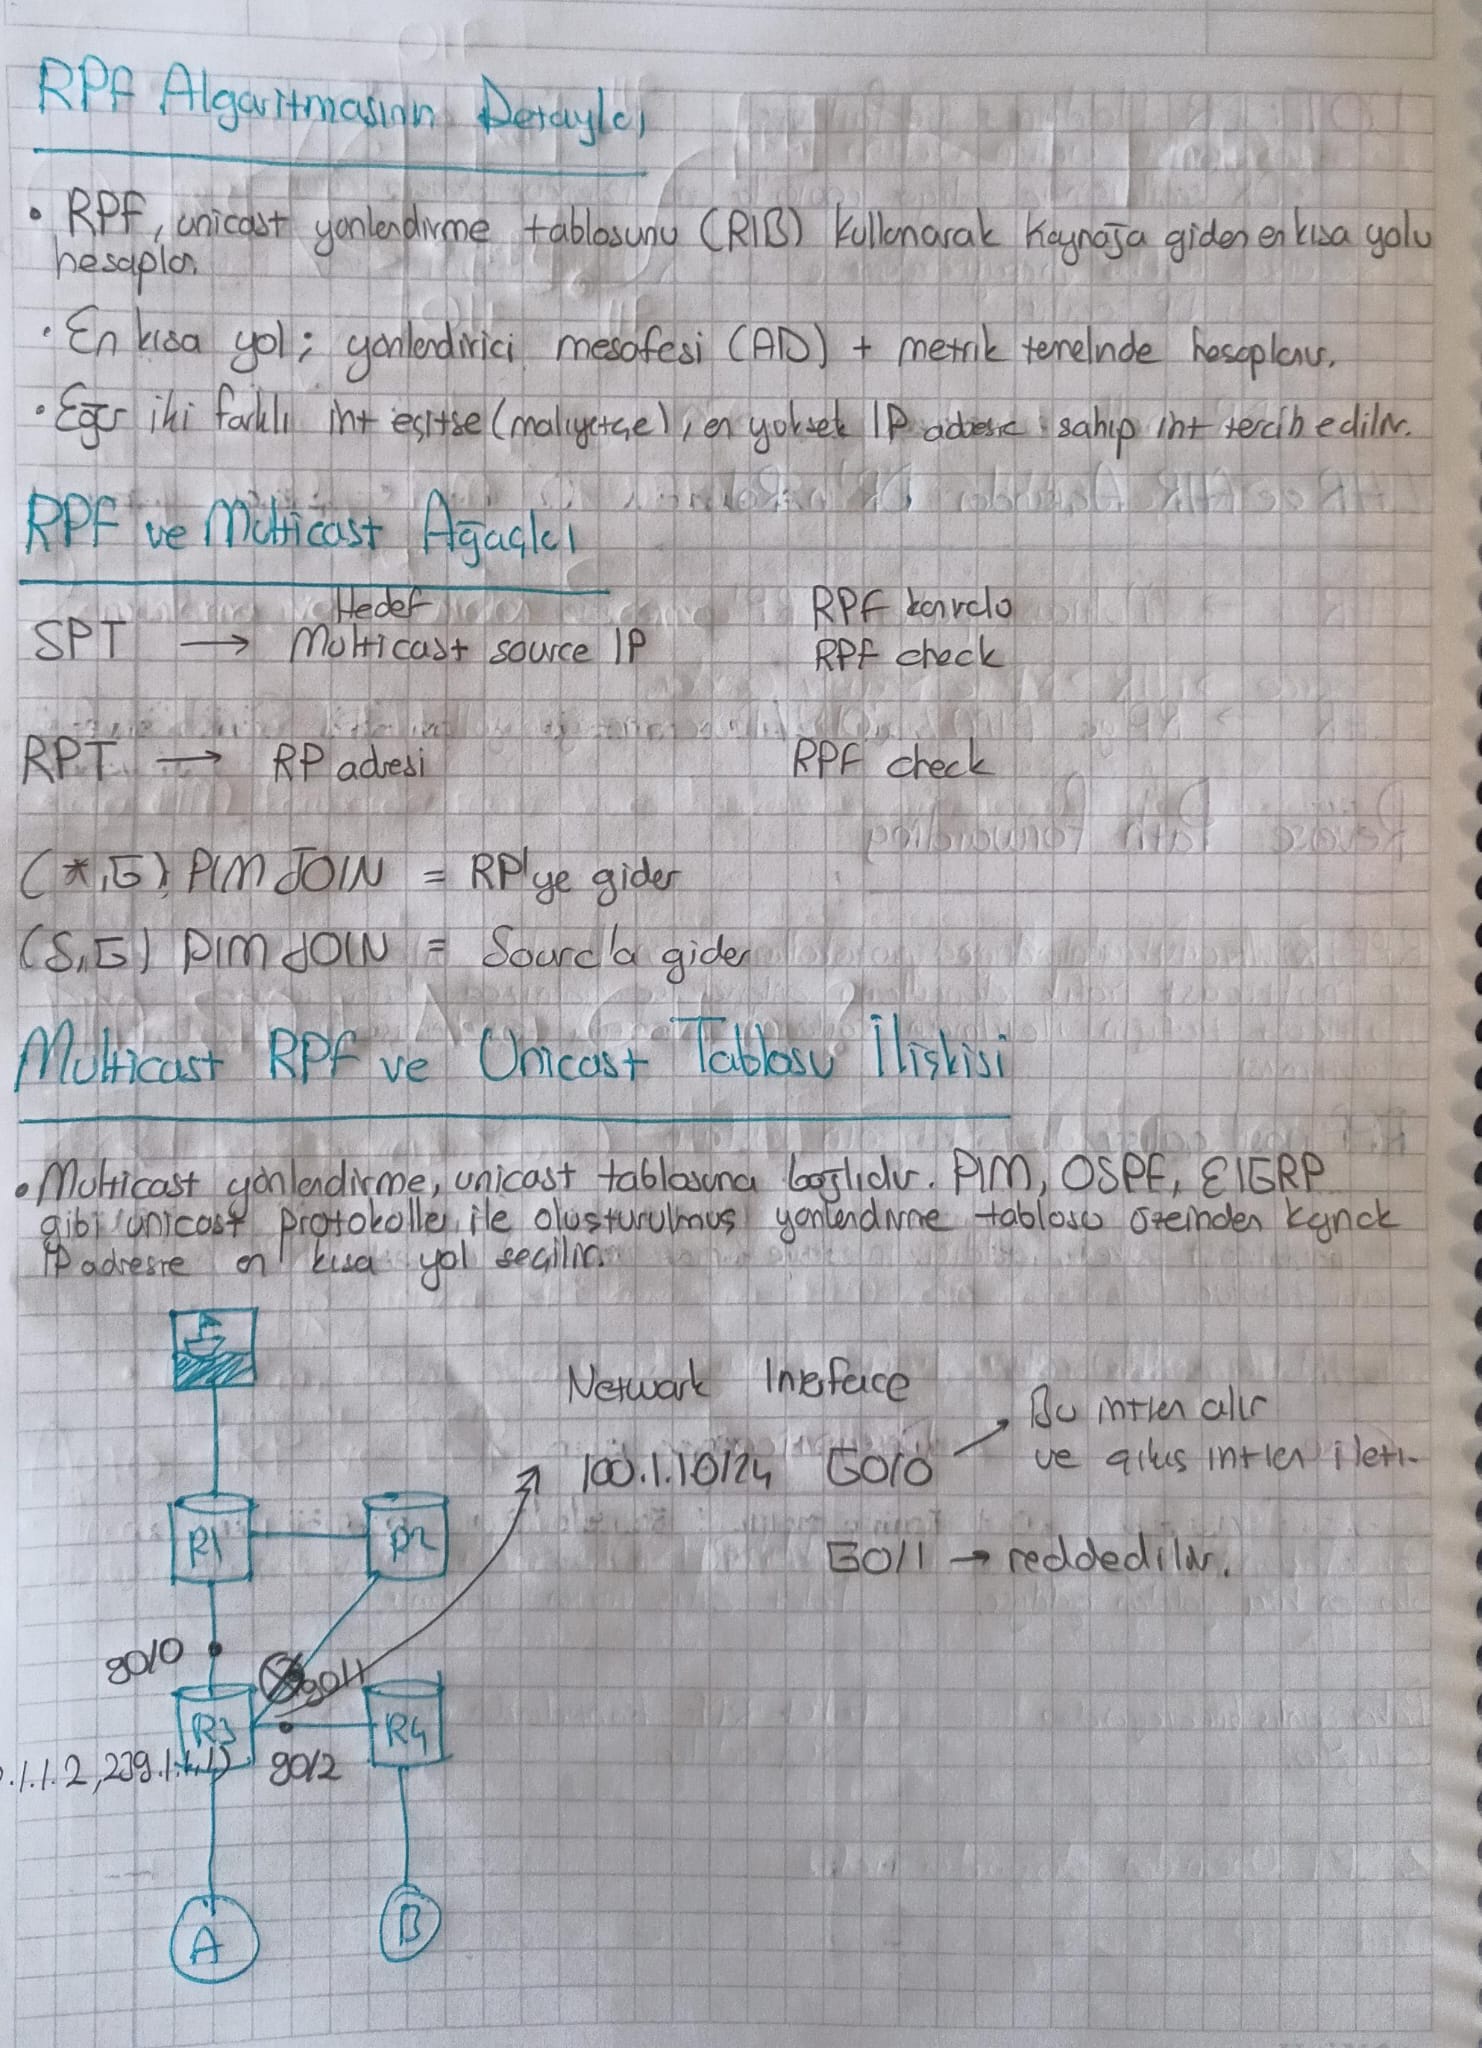 RPF Algaritmasının Detaylcı
• RPF, unicast yönlendirme tablosunu (RIB) kullanarak kaynağa giden en kısa yolu
hesaplar.
• En kısa yol; yönlendirici mesafesi (AD) + metrik temelinde hesaplanır.
• Eğer iki farklı int eşitse (maliyetçe), en yüksek IP adresine sahip int tercih edilir.
RPF ve Multicast Ağaçlcı
Hedef RPF kontrolü
SPT → Multicast source IP RPF check
RPT → RP adresi RPF check
(*,G) PIM JOIN = RP'ye gider
(S,G) PIM JOIN = Source'a gider
Multicast RPF ve Unicast Tablosu İlişkisi
• Multicast yönlendirme, unicast tablosuna bağlıdır. PIM, OSPF, EIGRP
gibi unicast protokolleri ile oluşturulmuş yönlendirme tablosu üzerinden kaynak
IP adresine en kısa yol seçilir.
Network Interface
100.1.1.0/24 G0/0 → Bu intten alır
ve çıkış intten iletir.
G0/1 → reddedilir.
R1 R2
g0/0
g0/1
R3 R4
.1.1.2, 239.1.1.1) g0/2
A B